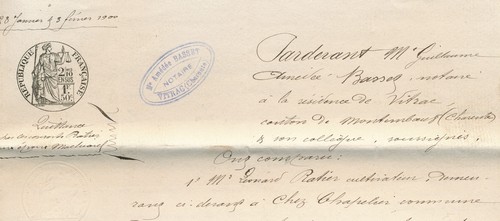 28 Janvier & 3 février 1900
RÉPUBLIQUE FRANÇAISE
2/10 EN SUS
1F.50c.
Me Amédée BASSET
NOTAIRE
VITRAC (Charente)
Quittance
Ratier
Pardevant Me Guillaume
Amédée Basset notaire
à la résidence de Vitrac,
canton de Montembœuf (Charente)
& son collègue, soussignés,
Ont comparu:
1° Mr Léonard Ratier cultivateur demeu-
rant ci-devant à Chez Chapelier commune